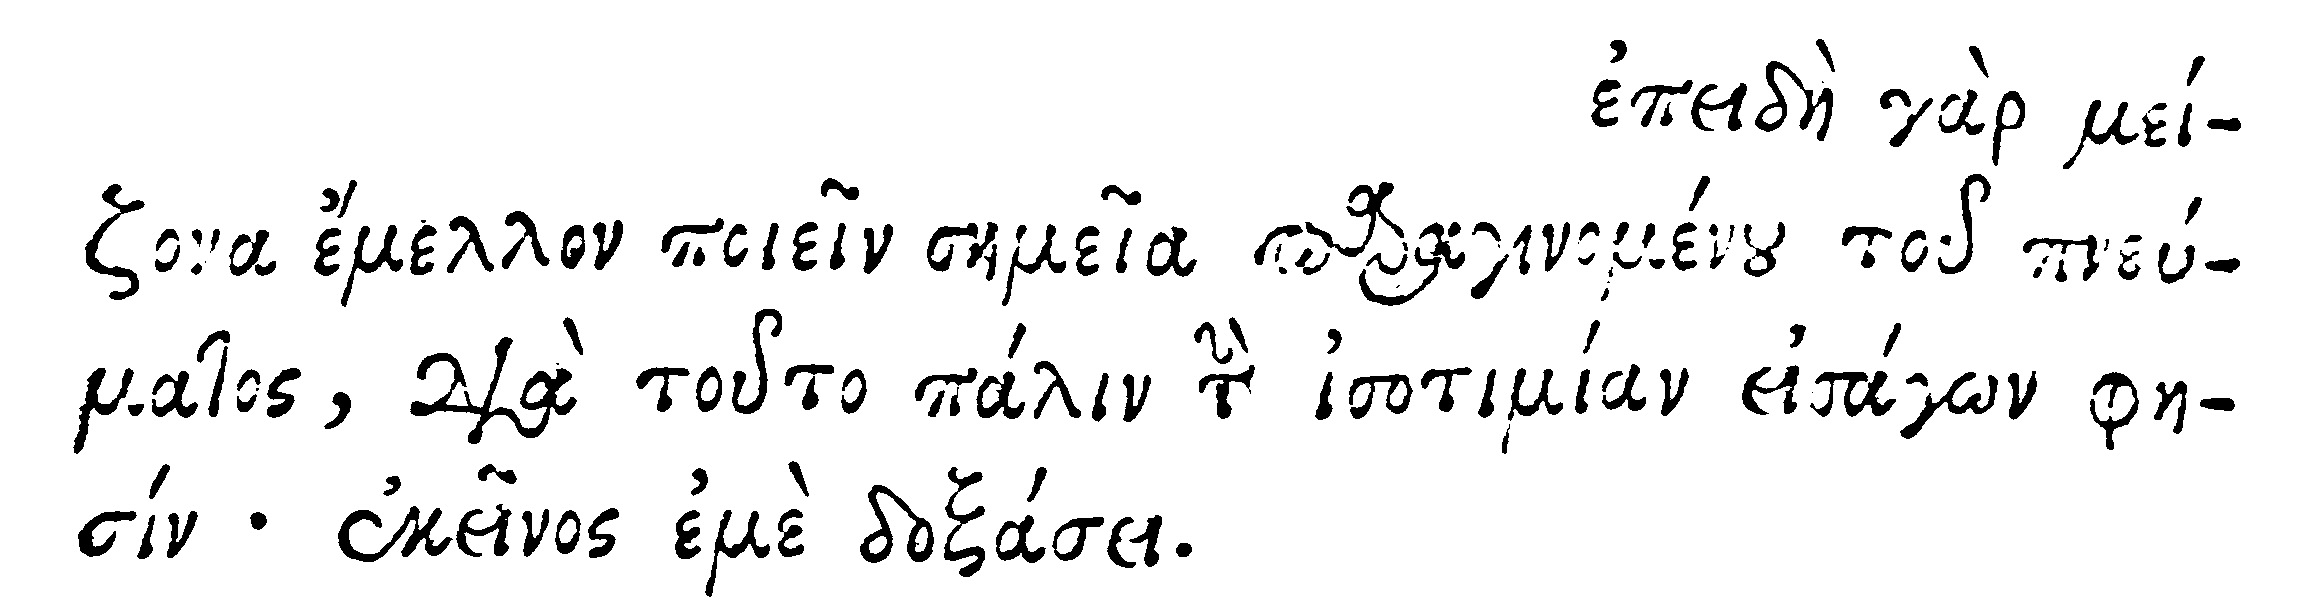 ἐπειδὴ γὰρ μεί-
ζονα ἔμελλον ποιεῖν σημεῖα παραγινομένου τοῦ πνεύ-
ματος, διὰ τοῦτο πάλιν τὴν ἰσοτιμίαν εἰσάγων φη-
σίν · ἐκεῖνος ἐμὲ δοξάσει.